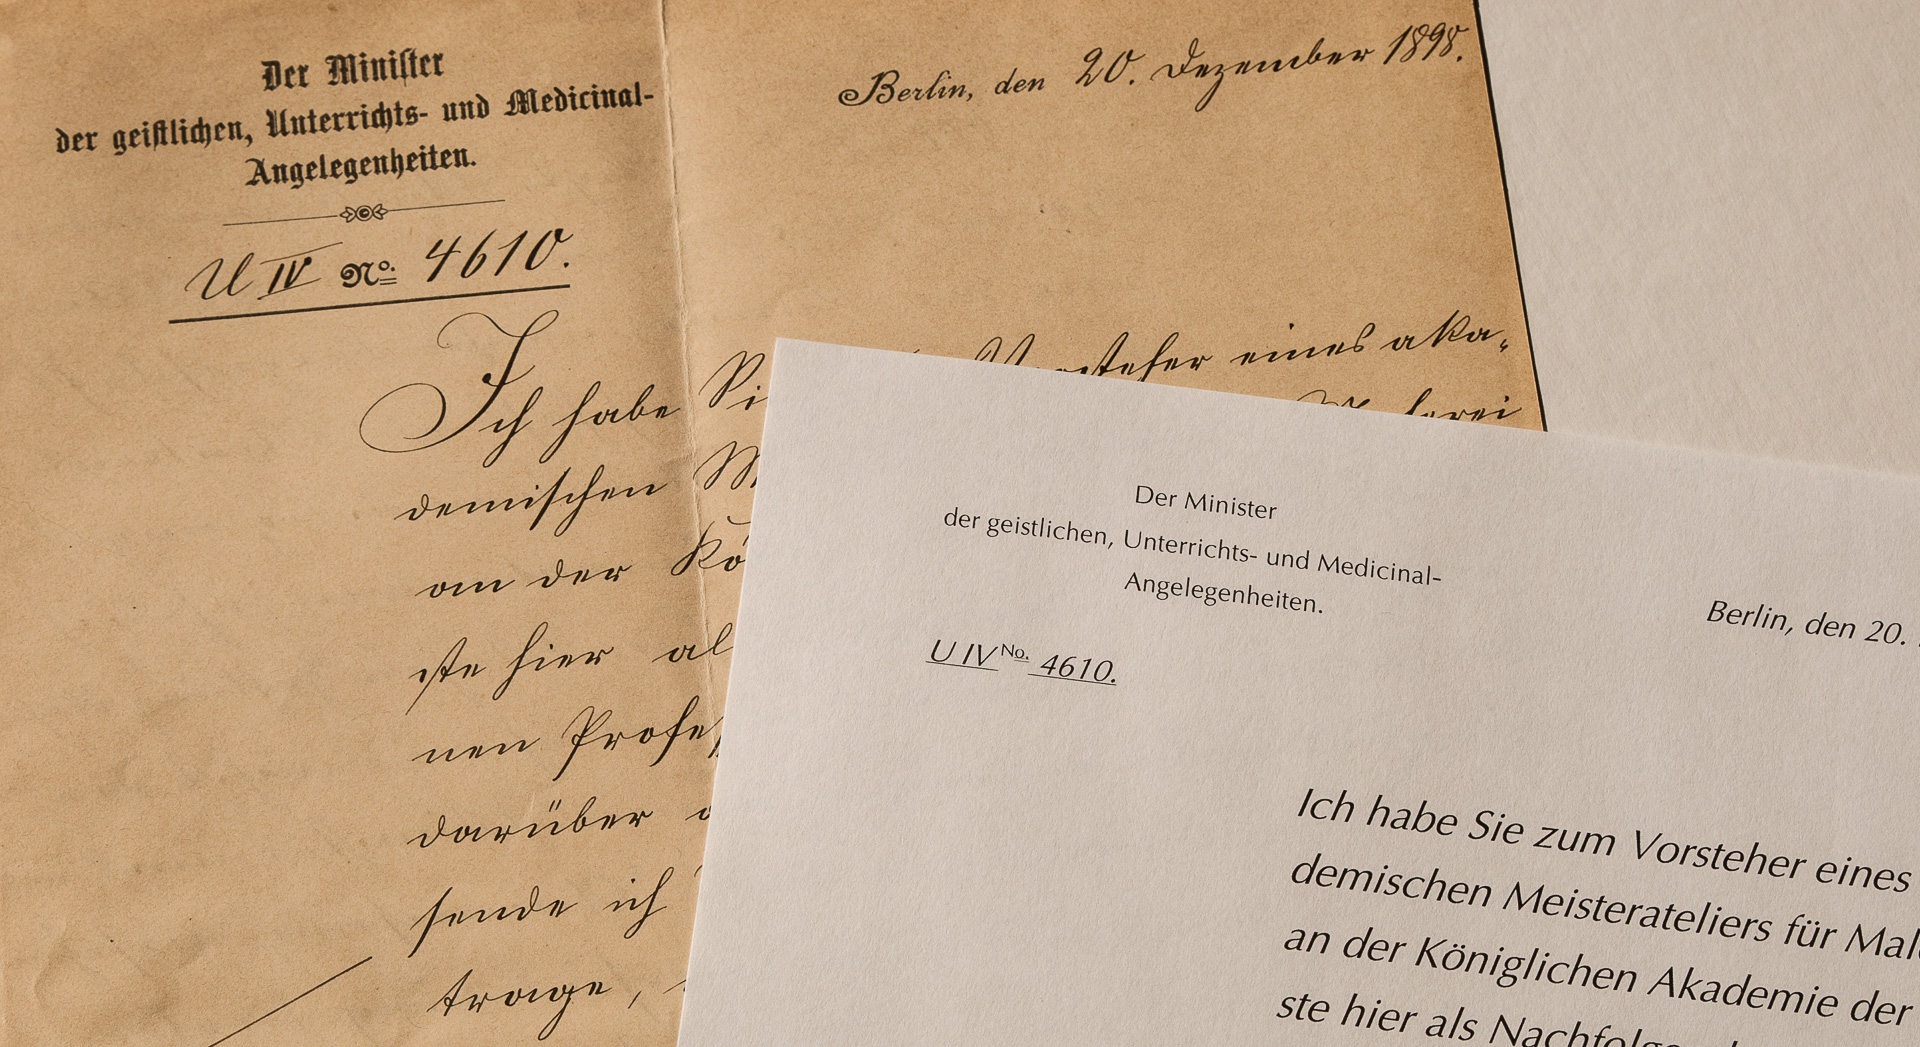 Der Minister
der geistlichen, Unterrichts- und Medicinal-
Angelegenheiten.
U IV No. 4610.
Berlin, den 20. Dezember 1898.
Ich habe Vorsteher eines aka-
demischen
an der
ste hier
nen
darüber
sende ich
trage,
Der Minister
der geistlichen, Unterrichts- und Medicinal-
Angelegenheiten.
U IV No. 4610.
Berlin, den 20.
Ich habe Sie zum Vorsteher eines
demischen Meisterateliers für
an der Königlichen Akademie der
ste hier als